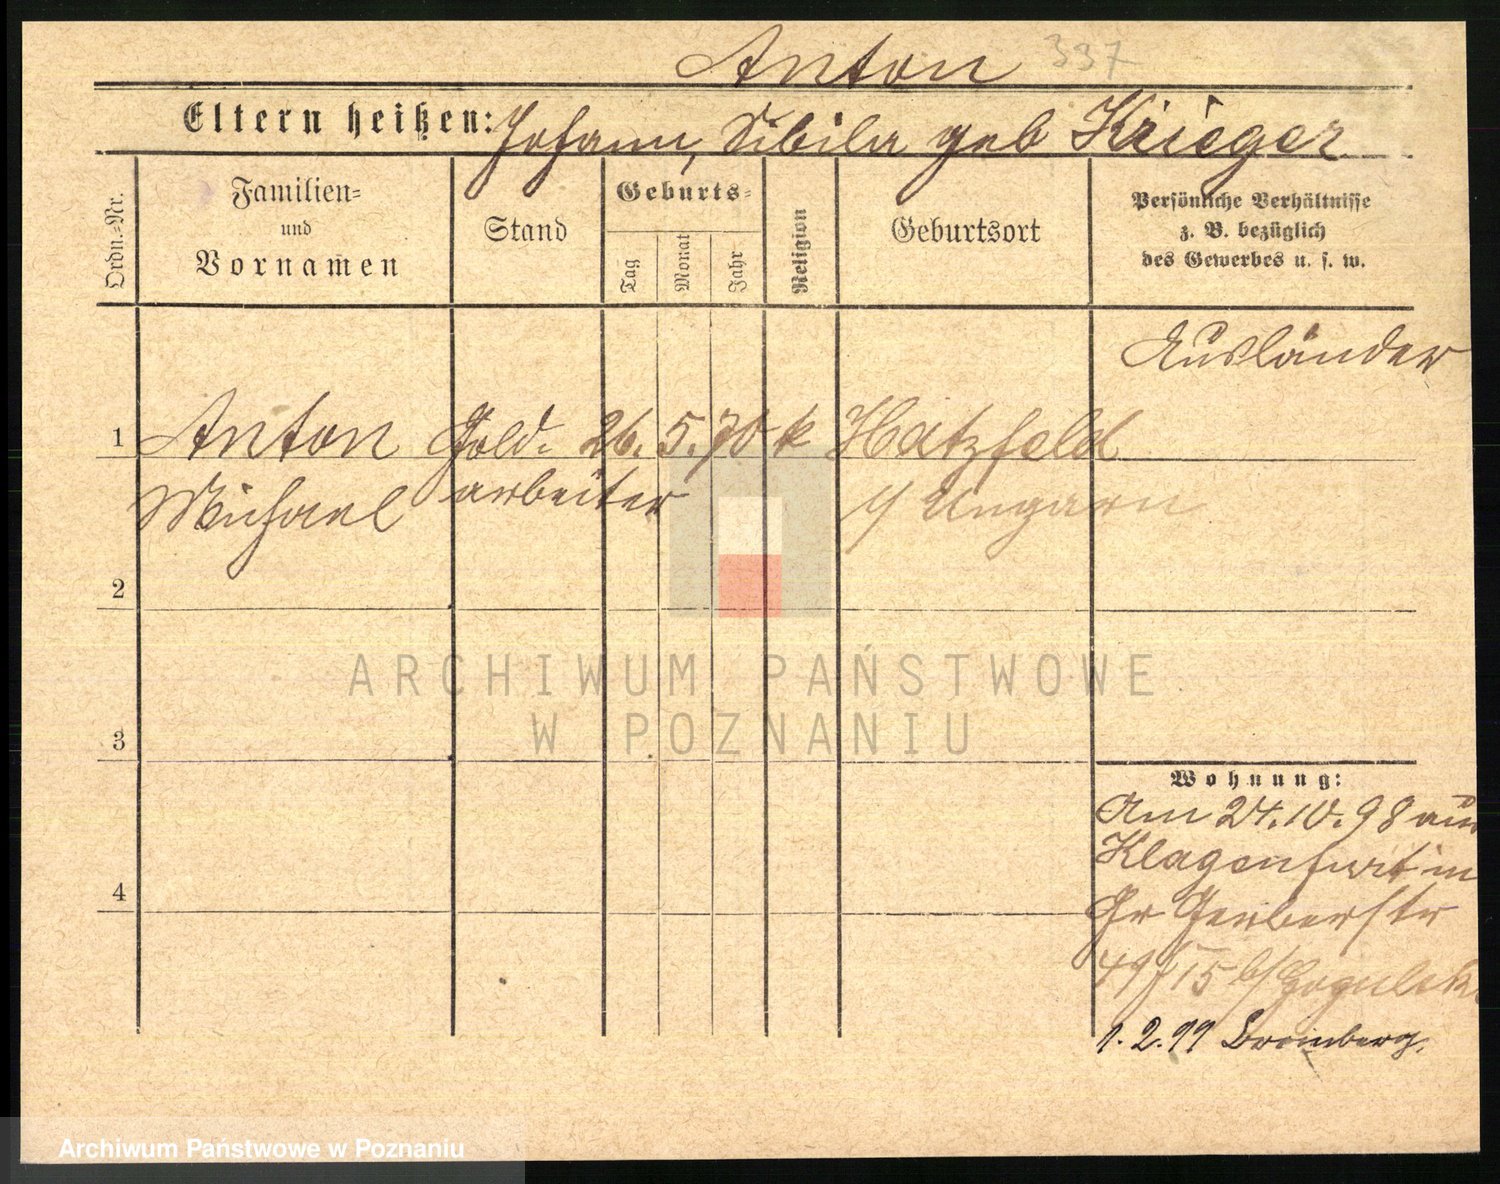 Anton 337
Eltern heißen: Johann, Sibila geb Krieger
Ordn.-Nr.
Familien- und Vornamen
Stand
Geburts-
Tag
Monat
Jahr
Religion
Geburtsort
Persönliche Verhältnisse
z. B. bezüglich
des Gewerbes u. s. w.
Ausländer
1 Anton Gold- 26. 5. 70 k Hatzfeld
Michael arbeiter Ungarn
2
ARCHIWUM PAŃSTWOWE
W POZNANIU
3
Wohnung:
Am 24.10.98 aus
Klagenfurt in
4
Gr Gerberstr
49 15 b/
1.2.99 Bromberg.
Archiwum Państwowe w Poznaniu